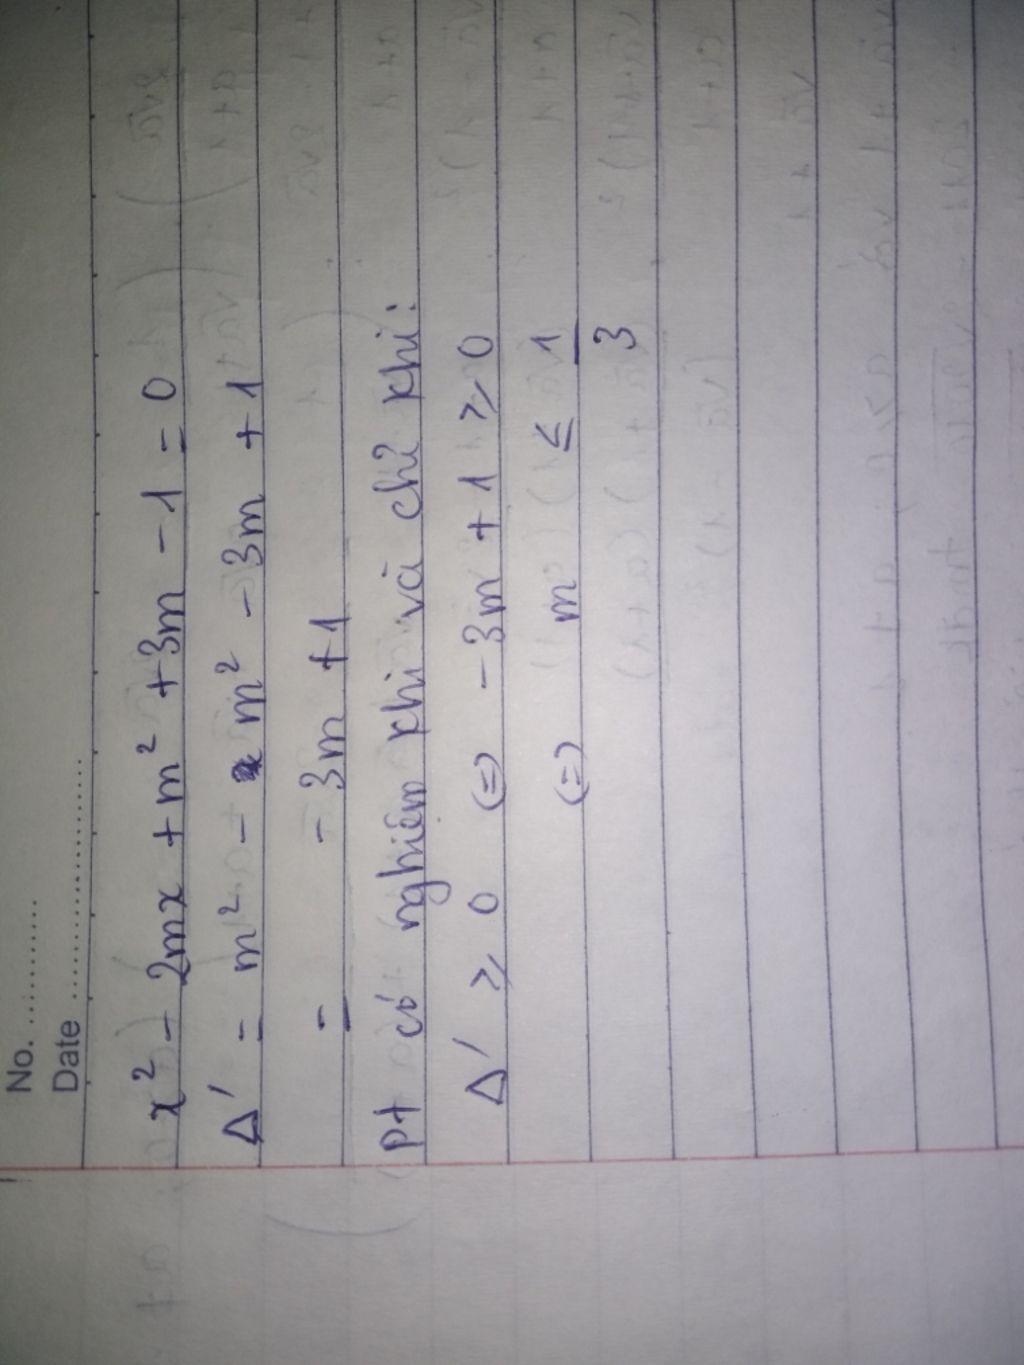 No. ..........
Date ....................
x² - 2mx + m² + 3m - 1 = 0
Δ' = m² - m² - 3m + 1
= - 3m + 1
pt có nghiệm khi và chỉ khi:
Δ' ≥ 0 (=) - 3m + 1 ≥ 0
(=) m ≤ 1/3